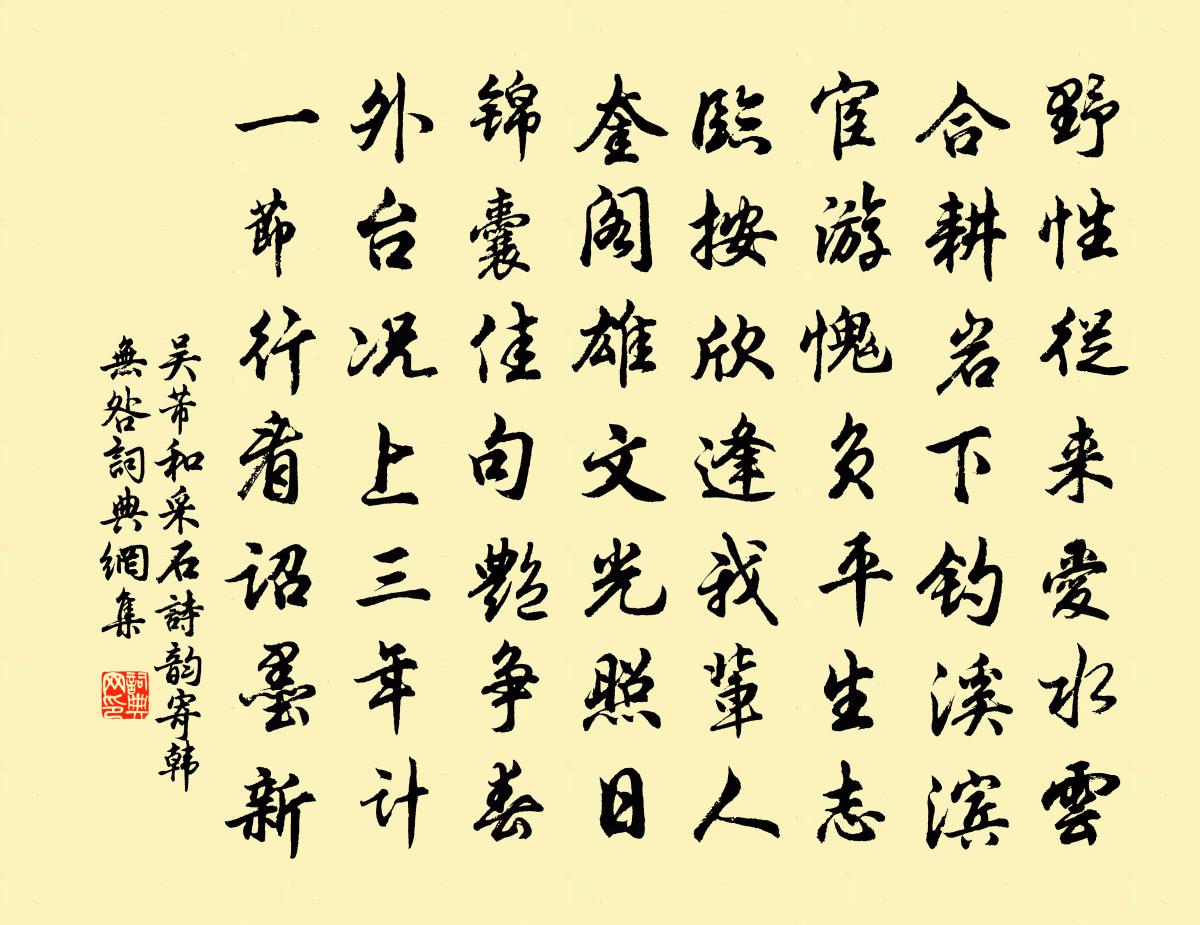 野性從来愛水雲
合耕岩下钓溪滨
宦游愧负平生志
臨按欣逢我輩人
奎阁雄文光照日
锦囊佳句艷争春
外台况上三年计
一節行看诏墨新
吴芾和采石詩韵寄韩
無咎詞典網集
詞典网印